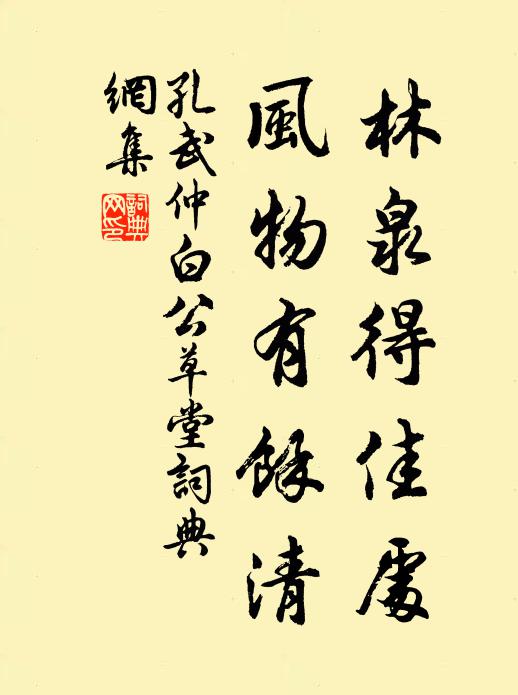 林泉得佳處
風物有餘清
孔武仲白公草堂詞典
網集
詞典
网印